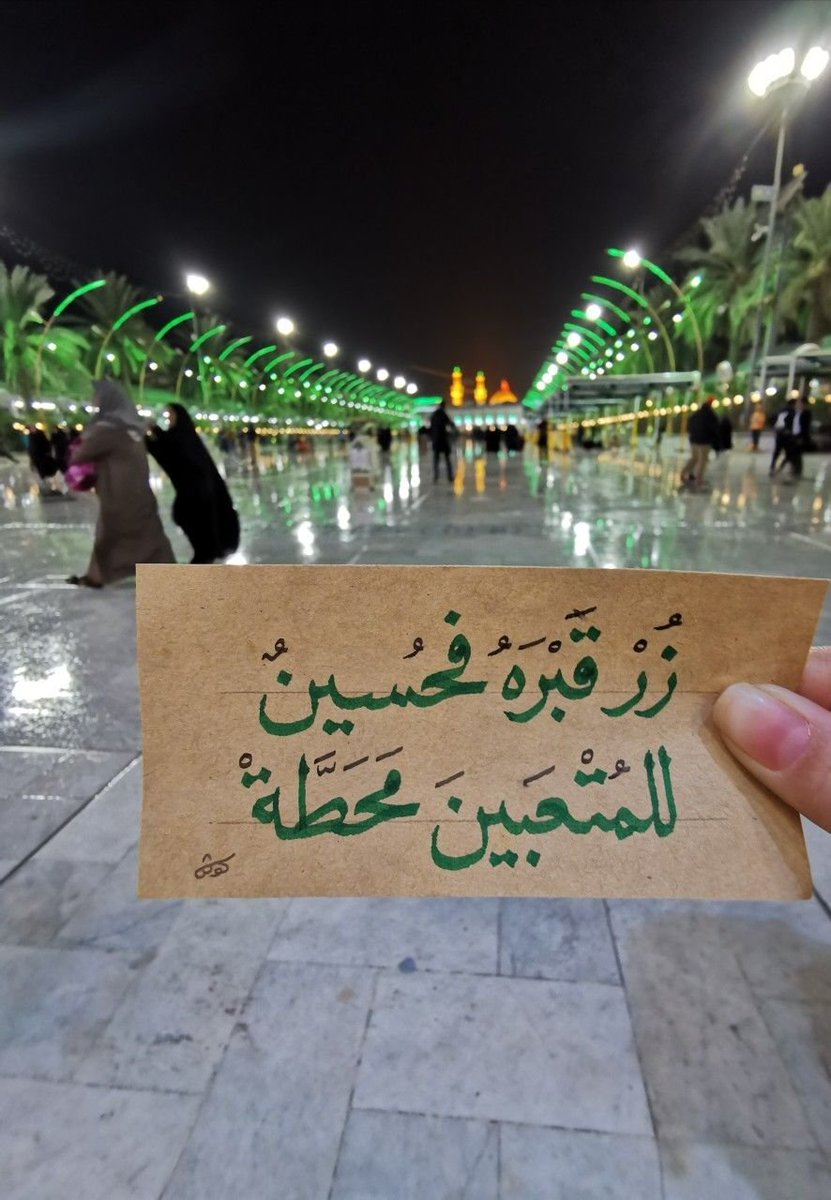 زُرْ قَبْرَهُ فَحُسينٌ
للمُتْعَبينَ مَحَطَّةْ